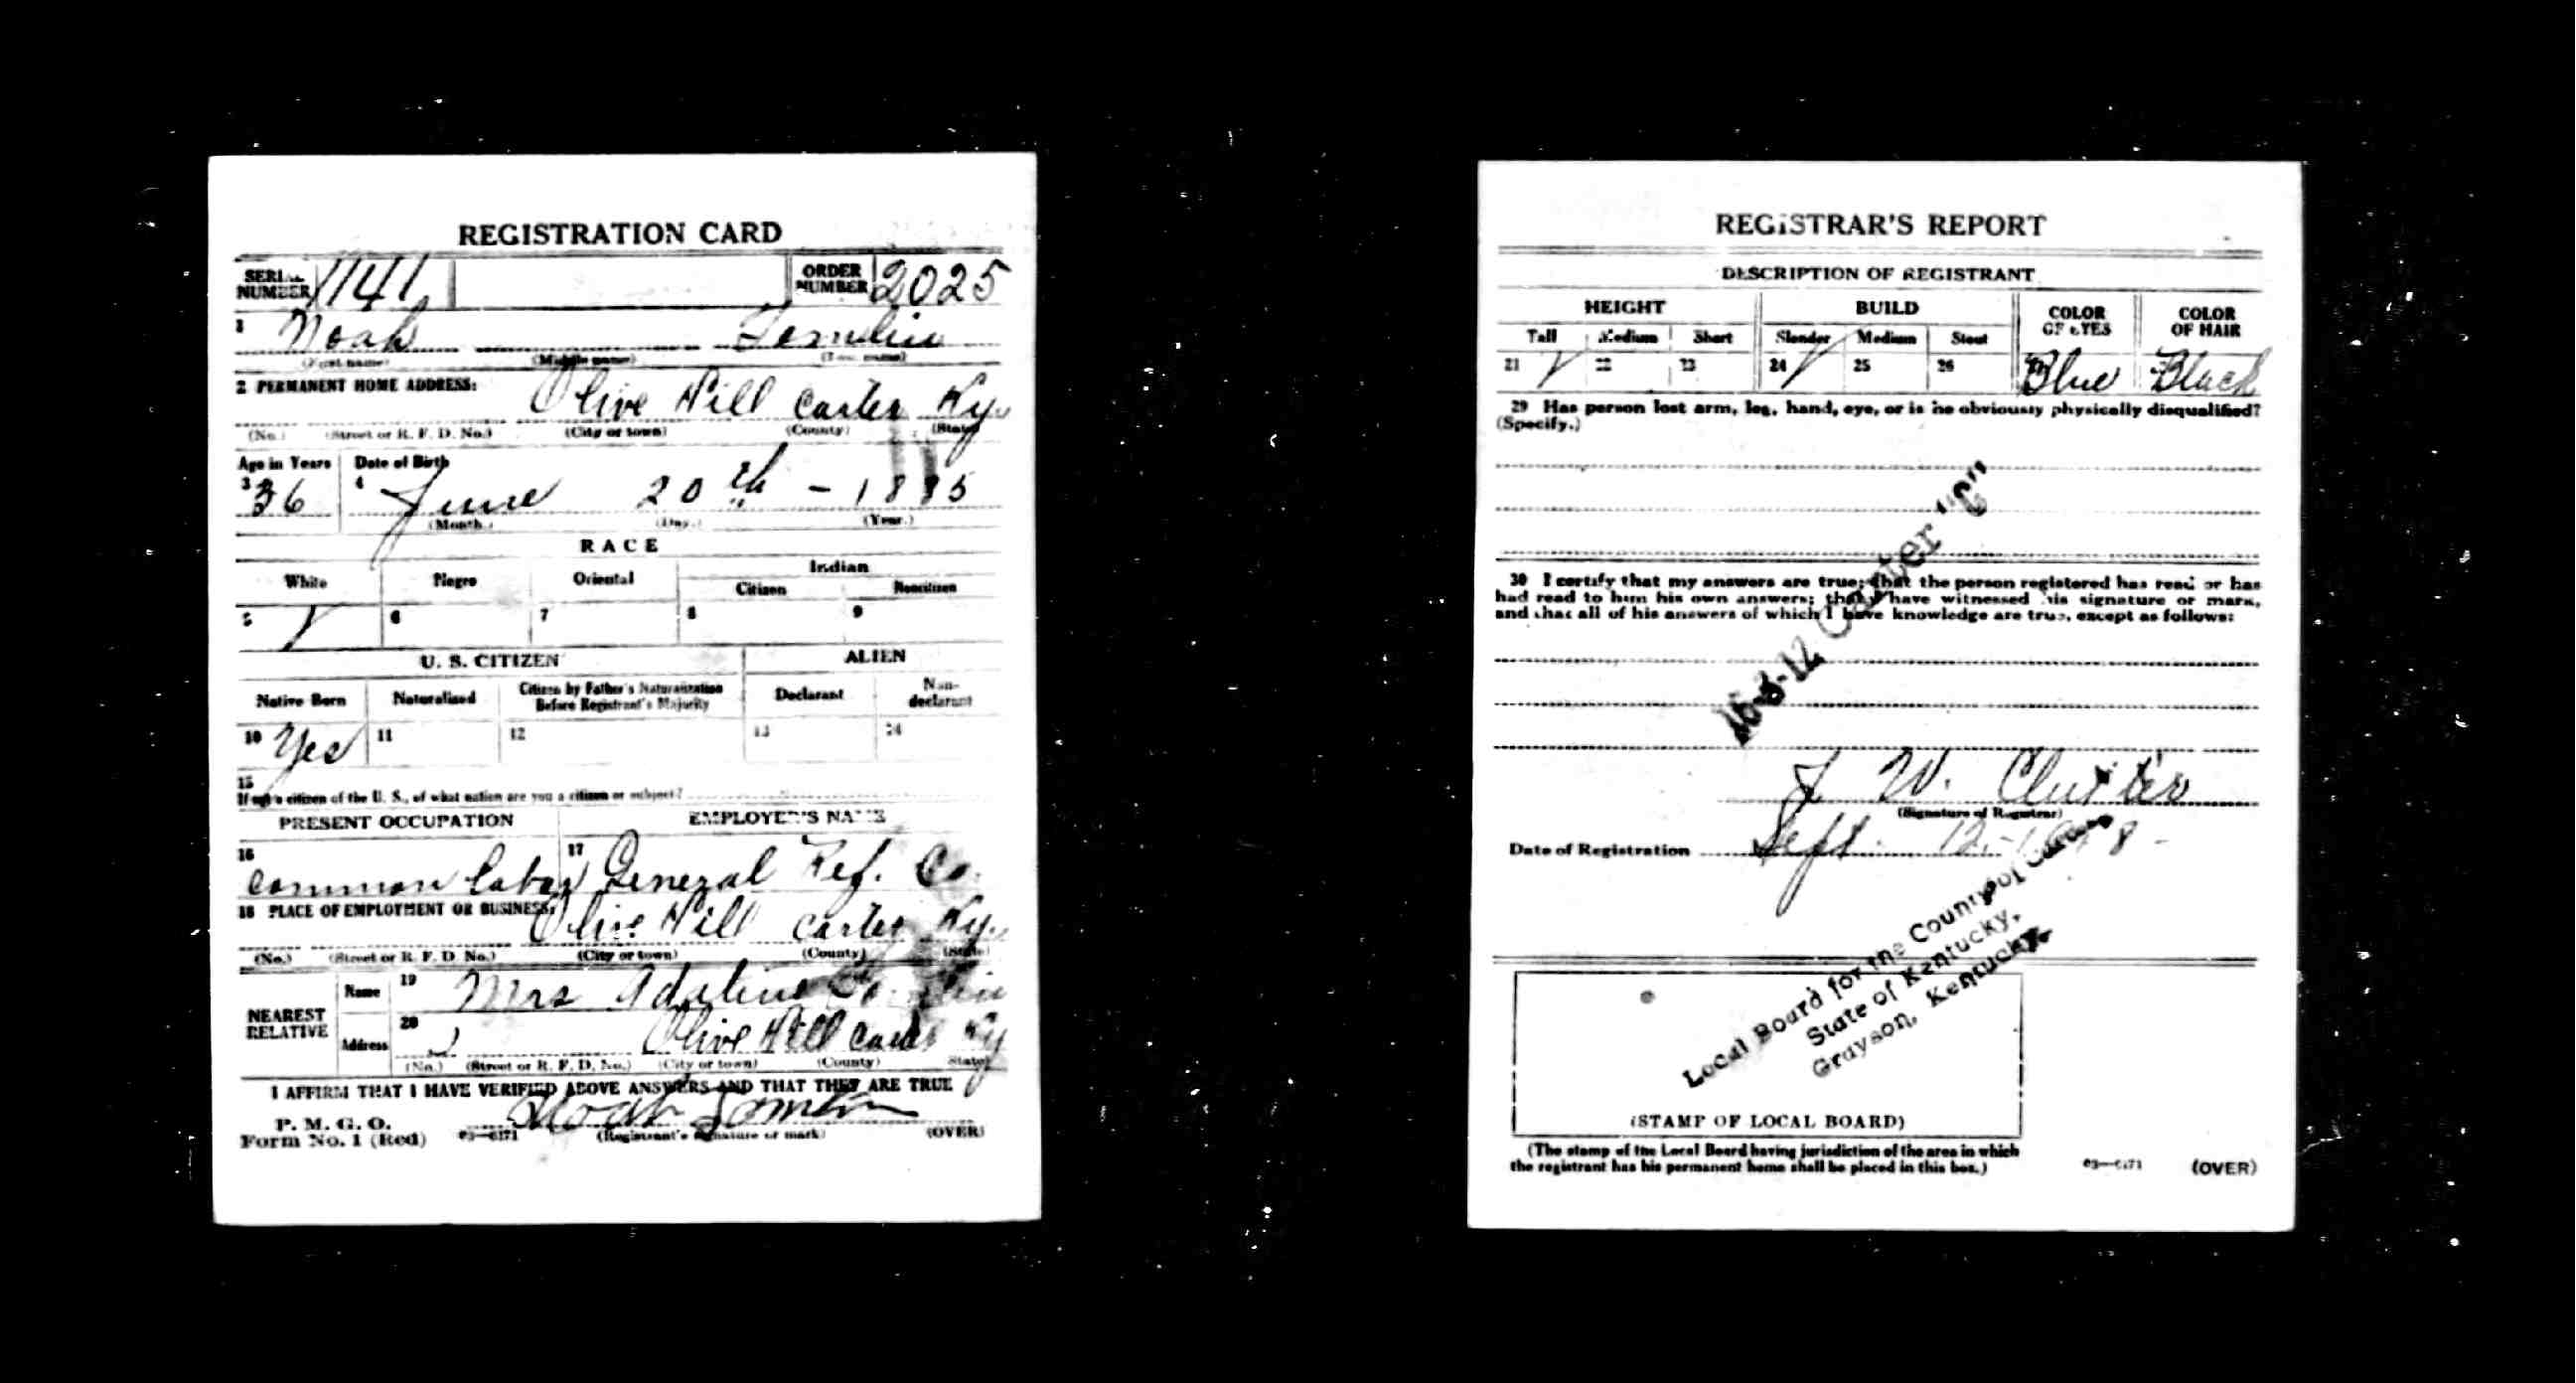 REGISTRATION CARD
SERIAL NUMBER 1741 ORDER NUMBER 2025
1 Noah Tomlin
(First name) (Middle name) (Last name)
2 PERMANENT HOME ADDRESS:
Olive Hill Carter Ky.
(No.) (Street or R. F. D. No.) (City or town) (County) (State)
Age in Years Date of Birth
3 36 4 June 20th - 1885
(Month.) (Day.) (Year.)
RACE
White Negro Oriental Indian
Citizen Noncitizen
5 6 7 8 9
U. S. CITIZEN ALIEN
Native Born Naturalized Citizen by Father's Naturalization Before Registrant's Majority Declarant Non-declarant
10 Yes 11 12 13 14
15
If not a citizen of the U. S., of what nation are you a citizen or subject?
PRESENT OCCUPATION EMPLOYER'S NAME
16 common labor 17 General Ref. Co.
18 PLACE OF EMPLOYMENT OR BUSINESS:
Olive Hill Carter Ky.
(No.) (Street or R. F. D. No.) (City or town) (County) (State)
NEAREST RELATIVE Name 19 Mrs Adaline Tomlin
Address 20 Olive Hill Carter Ky
(No.) (Street or R. F. D. No.) (City or town) (County) (State)
I AFFIRM THAT I HAVE VERIFIED ABOVE ANSWERS AND THAT THEY ARE TRUE
P. M. G. O.
Form No. 1 (Red) 03—6171 Noah Tomlin (Registrant's signature or mark) (OVER)
REGISTRAR'S REPORT
DESCRIPTION OF REGISTRANT
HEIGHT BUILD COLOR OF EYES COLOR OF HAIR
Tall Medium Short Slender Medium Stout
21 22 23 24 25 26 Blue Black
29 Has person lost arm, leg, hand, eye, or is he obviously physically disqualified?
(Specify.)
30 I certify that my answers are true; that the person registered has read or has
had read to him his own answers; that I have witnessed his signature or mark,
and that all of his answers of which I have knowledge are true, except as follows:
16-3-12 Carter "C"
J W. Clutter
(Signature of Registrar)
Date of Registration Sept. 12 - 1918 -
Local Board for the County of Carter
State of Kentucky,
Grayson, Kentucky.
(STAMP OF LOCAL BOARD)
(The stamp of the Local Board having jurisdiction of the area in which
the registrant has his permanent home shall be placed in this box.)
03—6171 (OVER)